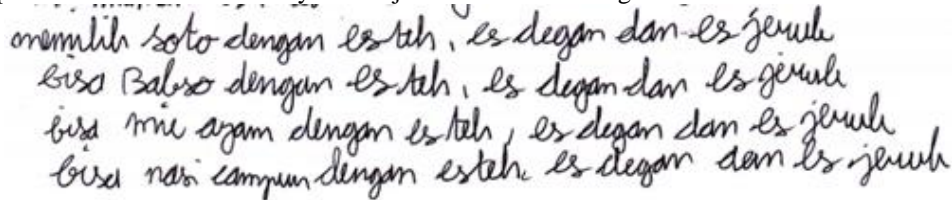 memilih soto dengan es teh, es degan dan es jeruk
bisa Bakso dengan es teh, es degan dan es jeruk
bisa mie ayam dengan es teh, es degan dan es jeruk
bisa nasi campur dengan es teh. es degan dan es jeruk